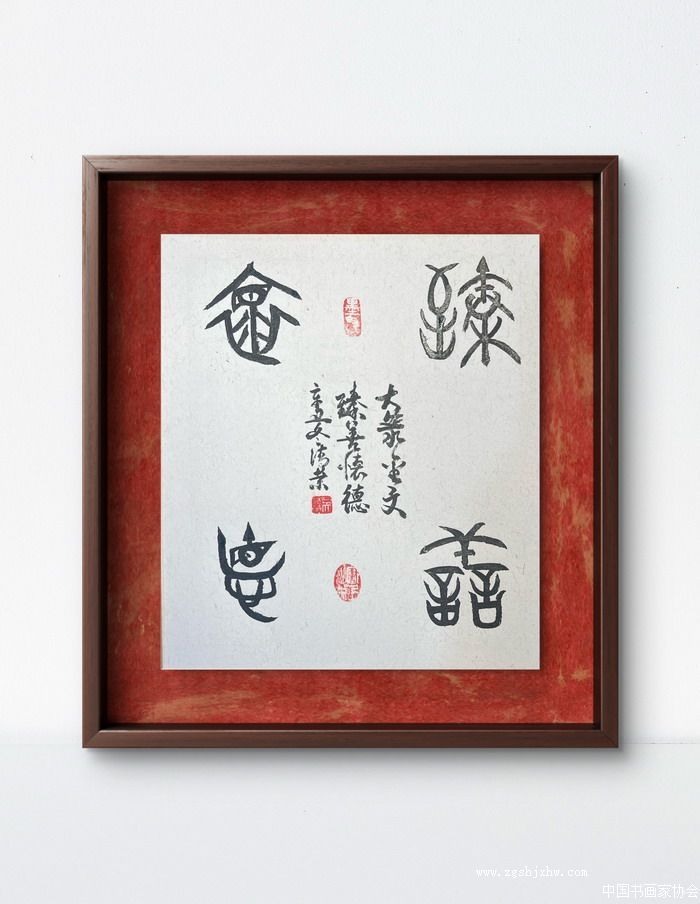 臻
善
懷
德
大篆金文
臻善懷德
辛丑
www.zgshjxhw.com
中国书画家协会